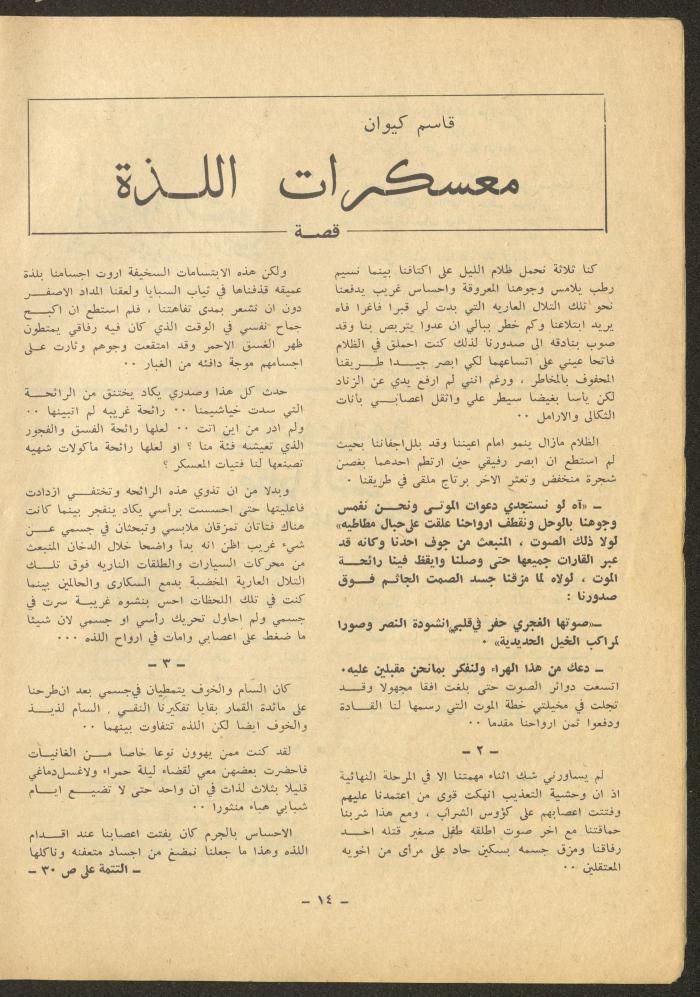 قاسم كيوان
معسكرات اللذة
قصة
كنا ثلاثة نحمل ظلام الليل على اكتافنا بينما نسيم
رطب يلامس وجوهنا المعروقة واحساس غريب يدفعنا
نحو تلك التلال العاريه التي بدت لي قبرا فاغرا فاه
يريد ابتلاعنا وكم خطر ببالي ان عدوا يتربص بنا وقد
صوب بنادقه الى صدورنا لذلك كنت احملق في الظلام
فاتحا عيني على اتساعهما لكي ابصر جيدا طريقنا
المحفوف بالمخاطر ، ورغم انني لم ارفع يدي عن الزناد
لكن يأسا بغيضا سيطر علي واثقل اعصابي بأنات
الثكالى والارامل ٠٠
الظلام مازال ينمو امام اعيننا وقد بلل اجفاننا بحيث
لم استطع ان ابصر رفيقي حين ارتطم احدهما بغصن
شجرة منخفض وتعثر الاخر برتاج ملقى في طريقنا ٠
ـ «آه لو نستجدي دعوات الموتى ونحن نغمس
وجوهنا بالوحل ونقطف ارواحنا علقت على حبال مطاطيه»
لولا ذلك الصوت ، المنبعث من جوف احدنا وكانه قد
عبر القارات جميعها حتى وصلنا وايقظ فينا رائحة
الموت ، لولاه لما مزقنا جسد الصمت الجاثم فوق
صدورنا :
ـ «صوتها الفجري حفر في قلبي انشودة النصر وصورا
لمراكب الخيل الحديدية» ٠
ـ دعك من هذا الهراء ولنفكر بمانحن مقبلين عليه٠
اتسعت دوائر الصوت حتى بلغت افقا مجهولا وقد
تجلت في مخيلتي خطة الموت التي رسمها لنا القادة
ودفعوا ثمن ارواحنا مقدما ٠٠
ـ ٢ ـ
لم يساورني شك اثناء مهمتنا الا في المرحلة النهائية
اذ ان وحشية التعذيب انهكت قوى من اعتمدنا عليهم
وفتتت اعصابهم على كؤوس الشراب ، ومع هذا شربنا
حماقتنا مع اخر صوت اطلقه طفل صغير قتله احد
رفاقنا ومزق جسمه بسكين حاد على مرأى من اخويه
المعتقلين ٠٠
ولكن هذه الابتسامات السخيفة اروت اجسامنا بلذة
عميقه قذفناها في ثياب السبايا ولعقنا المداد الاصفر
دون ان نشعر بمدى تفاهتنا ، فلم استطع ان اكبح
جماح نفسي في الوقت الذي كان فيه رفاقي يمتطون
ظهر الغسق الاحمر وقد امتقعت وجوهم وثارت على
اجسامهم موجة دافئه من الغبار ٠٠
حدث كل هذا وصدري يكاد يختنق من الرائحة
التي سدت خياشيمنا ٠٠ رائحة غريبه لم اتبينها ٠٠
ولم ادر من اين اتت ٠٠ لعلها رائحة الفسق والفجور
الذي تعيشه فئة منا ؟ او لعلها رائحة ماكولات شهيه
تصنعها لنا فتيات المعسكر ؟
وبدلا من ان تذوي هذه الرائحه وتختفي ازدادت
فاعليتها حتى احسست برأسي يكاد ينفجر بينما كانت
هناك فتاتان تمزقان ملابسي وتبحثان في جسمي عن
شيء غريب اظن انه بدا واضحا خلال الدخان المنبعث
من محركات السيارات والطلقات الناريه فوق تلك
التلال العارية المخضبة بدمع السكارى والحالمين بينما
كنت في تلك اللحظات احس بنشوه غريبة سرت في
جسمي ولم احاول تحريك رأسي او جسمي لان شيئا
ما ضغط على اعصابي وامات في ارواح اللذه ٠٠٠
ـ ٣ ـ
كان السأم والخوف يتمطيان في جسمي بعد ان طرحنا
على مائدة القمار بقايا تفكيرنا النقي . السأم لذيذ
والخوف ايضا لكن اللذه تتفاوت بينهما ٠٠
لقد كنت ممن يهوون نوعا خاصا من الغانيات
فاحضرت بعضهن معي لقضاء ليلة حمراء ولاغسل دماغي
قليلا بثلاث لذات في ان واحد حتى لا تضيع ايام
شبابي هباء منثورا ٠٠
الاحساس بالجرم كان يفتت اعصابنا عند اقدام
اللذه وهذا ما جعلنا نمضغ من اجساد متعفنه وناكلها
ـ التتمة على ص ٣٠ ـ
ـ ١٤ ـ